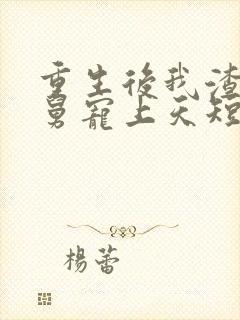 重生後我渣
舅寵上天短
楊蕾